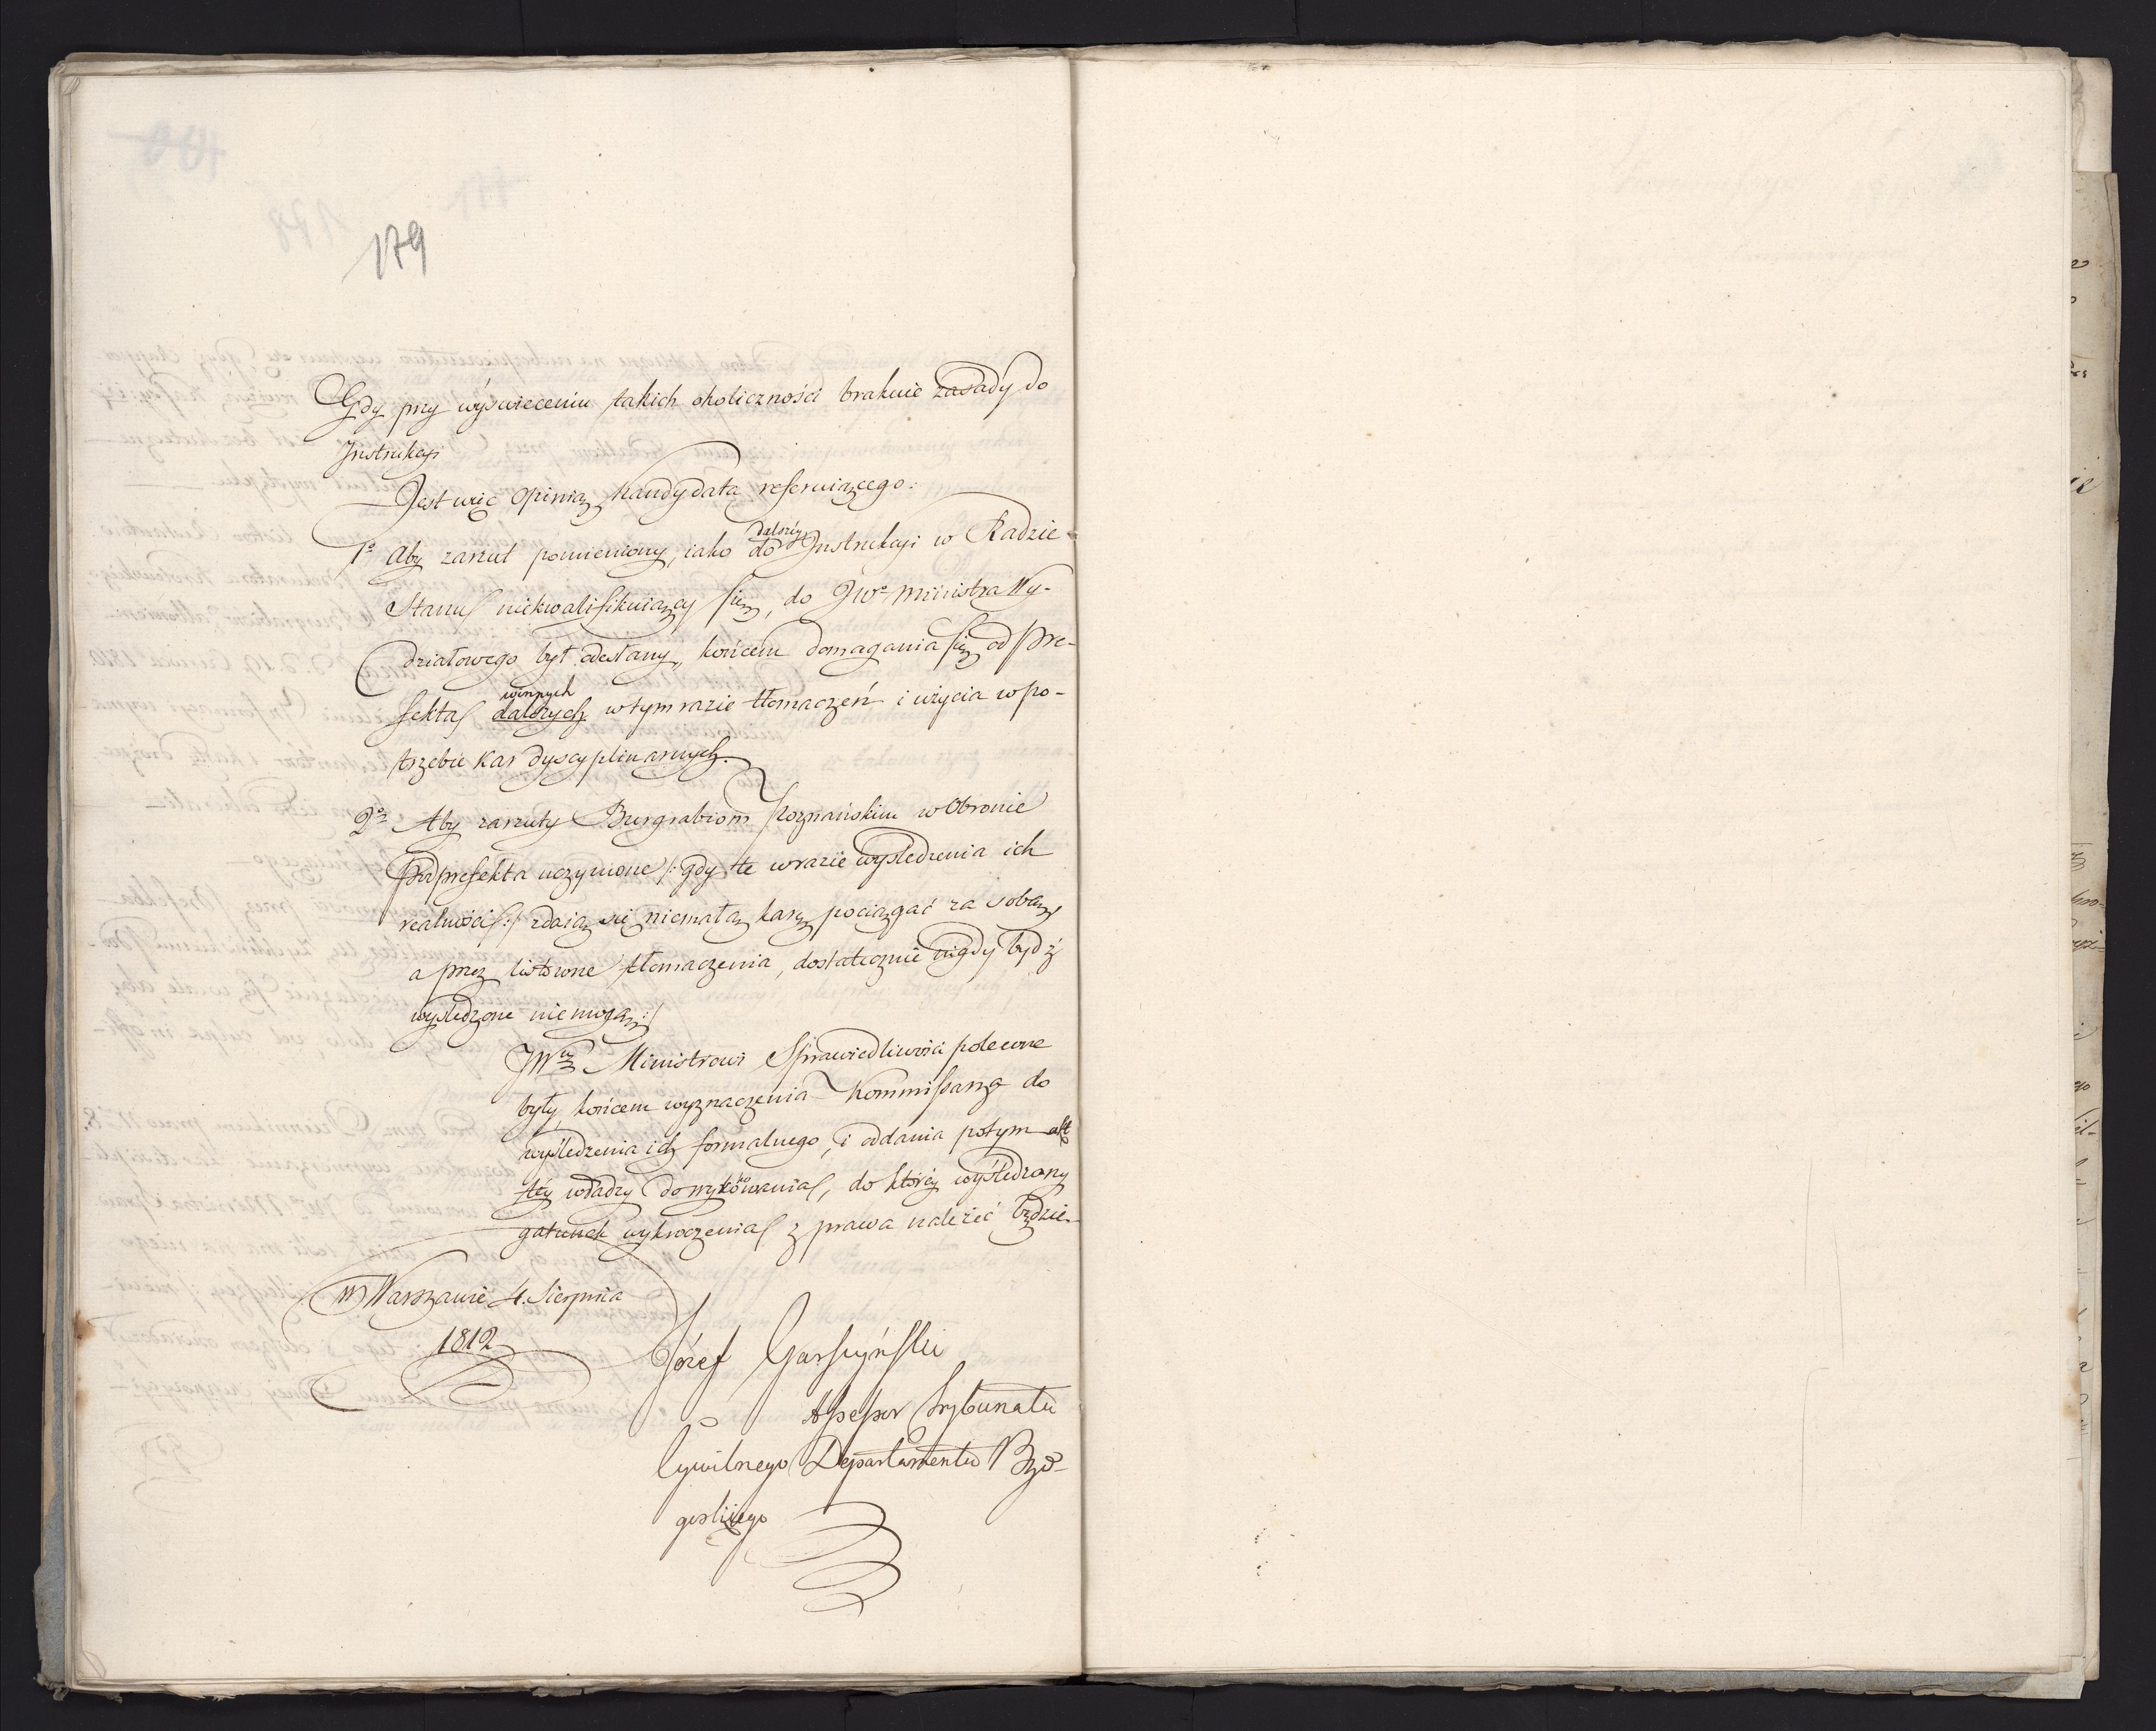 179
Gdy przy wyswieceniu takich okoliczności brakuie zasady do
Instrukcyi
Jest więc opinią kandydata referuiącego:
1º Aby zarzut pomieniony, iako do dalszéy Instrukcyi w Radzie
Stanu niekwalifikuiący się, do JWº Ministra Wy-
działowego był odesłany, końcem domagania się od Pre-
fekta dalszych winnych w tym razie tłomaczeń i użycia w po-
trzebie kar dyscyplinarnych.
2º Aby zarzuty Burgrabiom Poznańskim w Obronie
Podprefekta uczynione /: gdy te w razie wyśledzenia ich
realności :/ zdaią się niemałą karę pociągać za sobą,
a przez listowne tłomaczenia, dostatecznie nigdy bydź
wyśledzone nie mogą :/
JWu Ministrowi Sprawiedliwości polecone
były, końcem wyznaczenia Kommissarza do
wyśledzenia ich formalnego, i oddania potym akt
téy władzy do wyrokowania, do któréy wyśledzony
gatunek wykroczenia z prawa należeć będzie.
w Warszawie 4. Sierpnia
1812
Józef Garczyński
Assessor Trybunału
Cywilnego Departamentu Byd-
goskiego